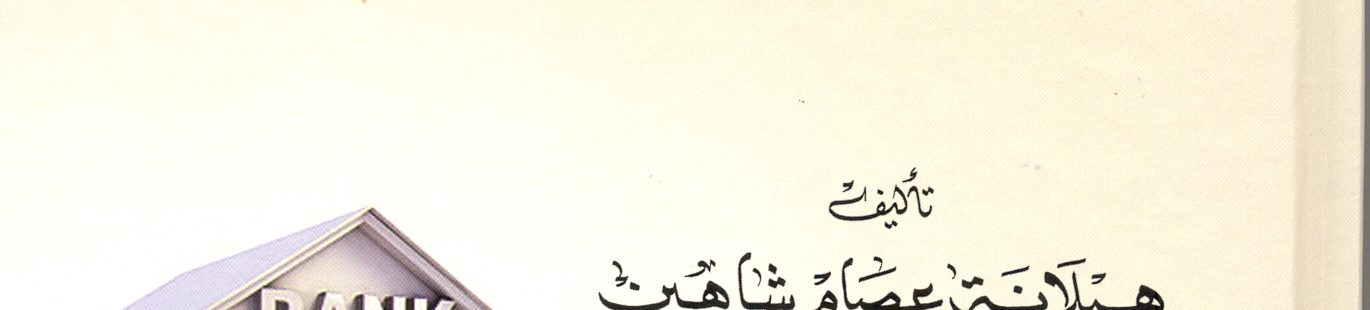 تأليف
هيلانة عصام شاهين
BANK